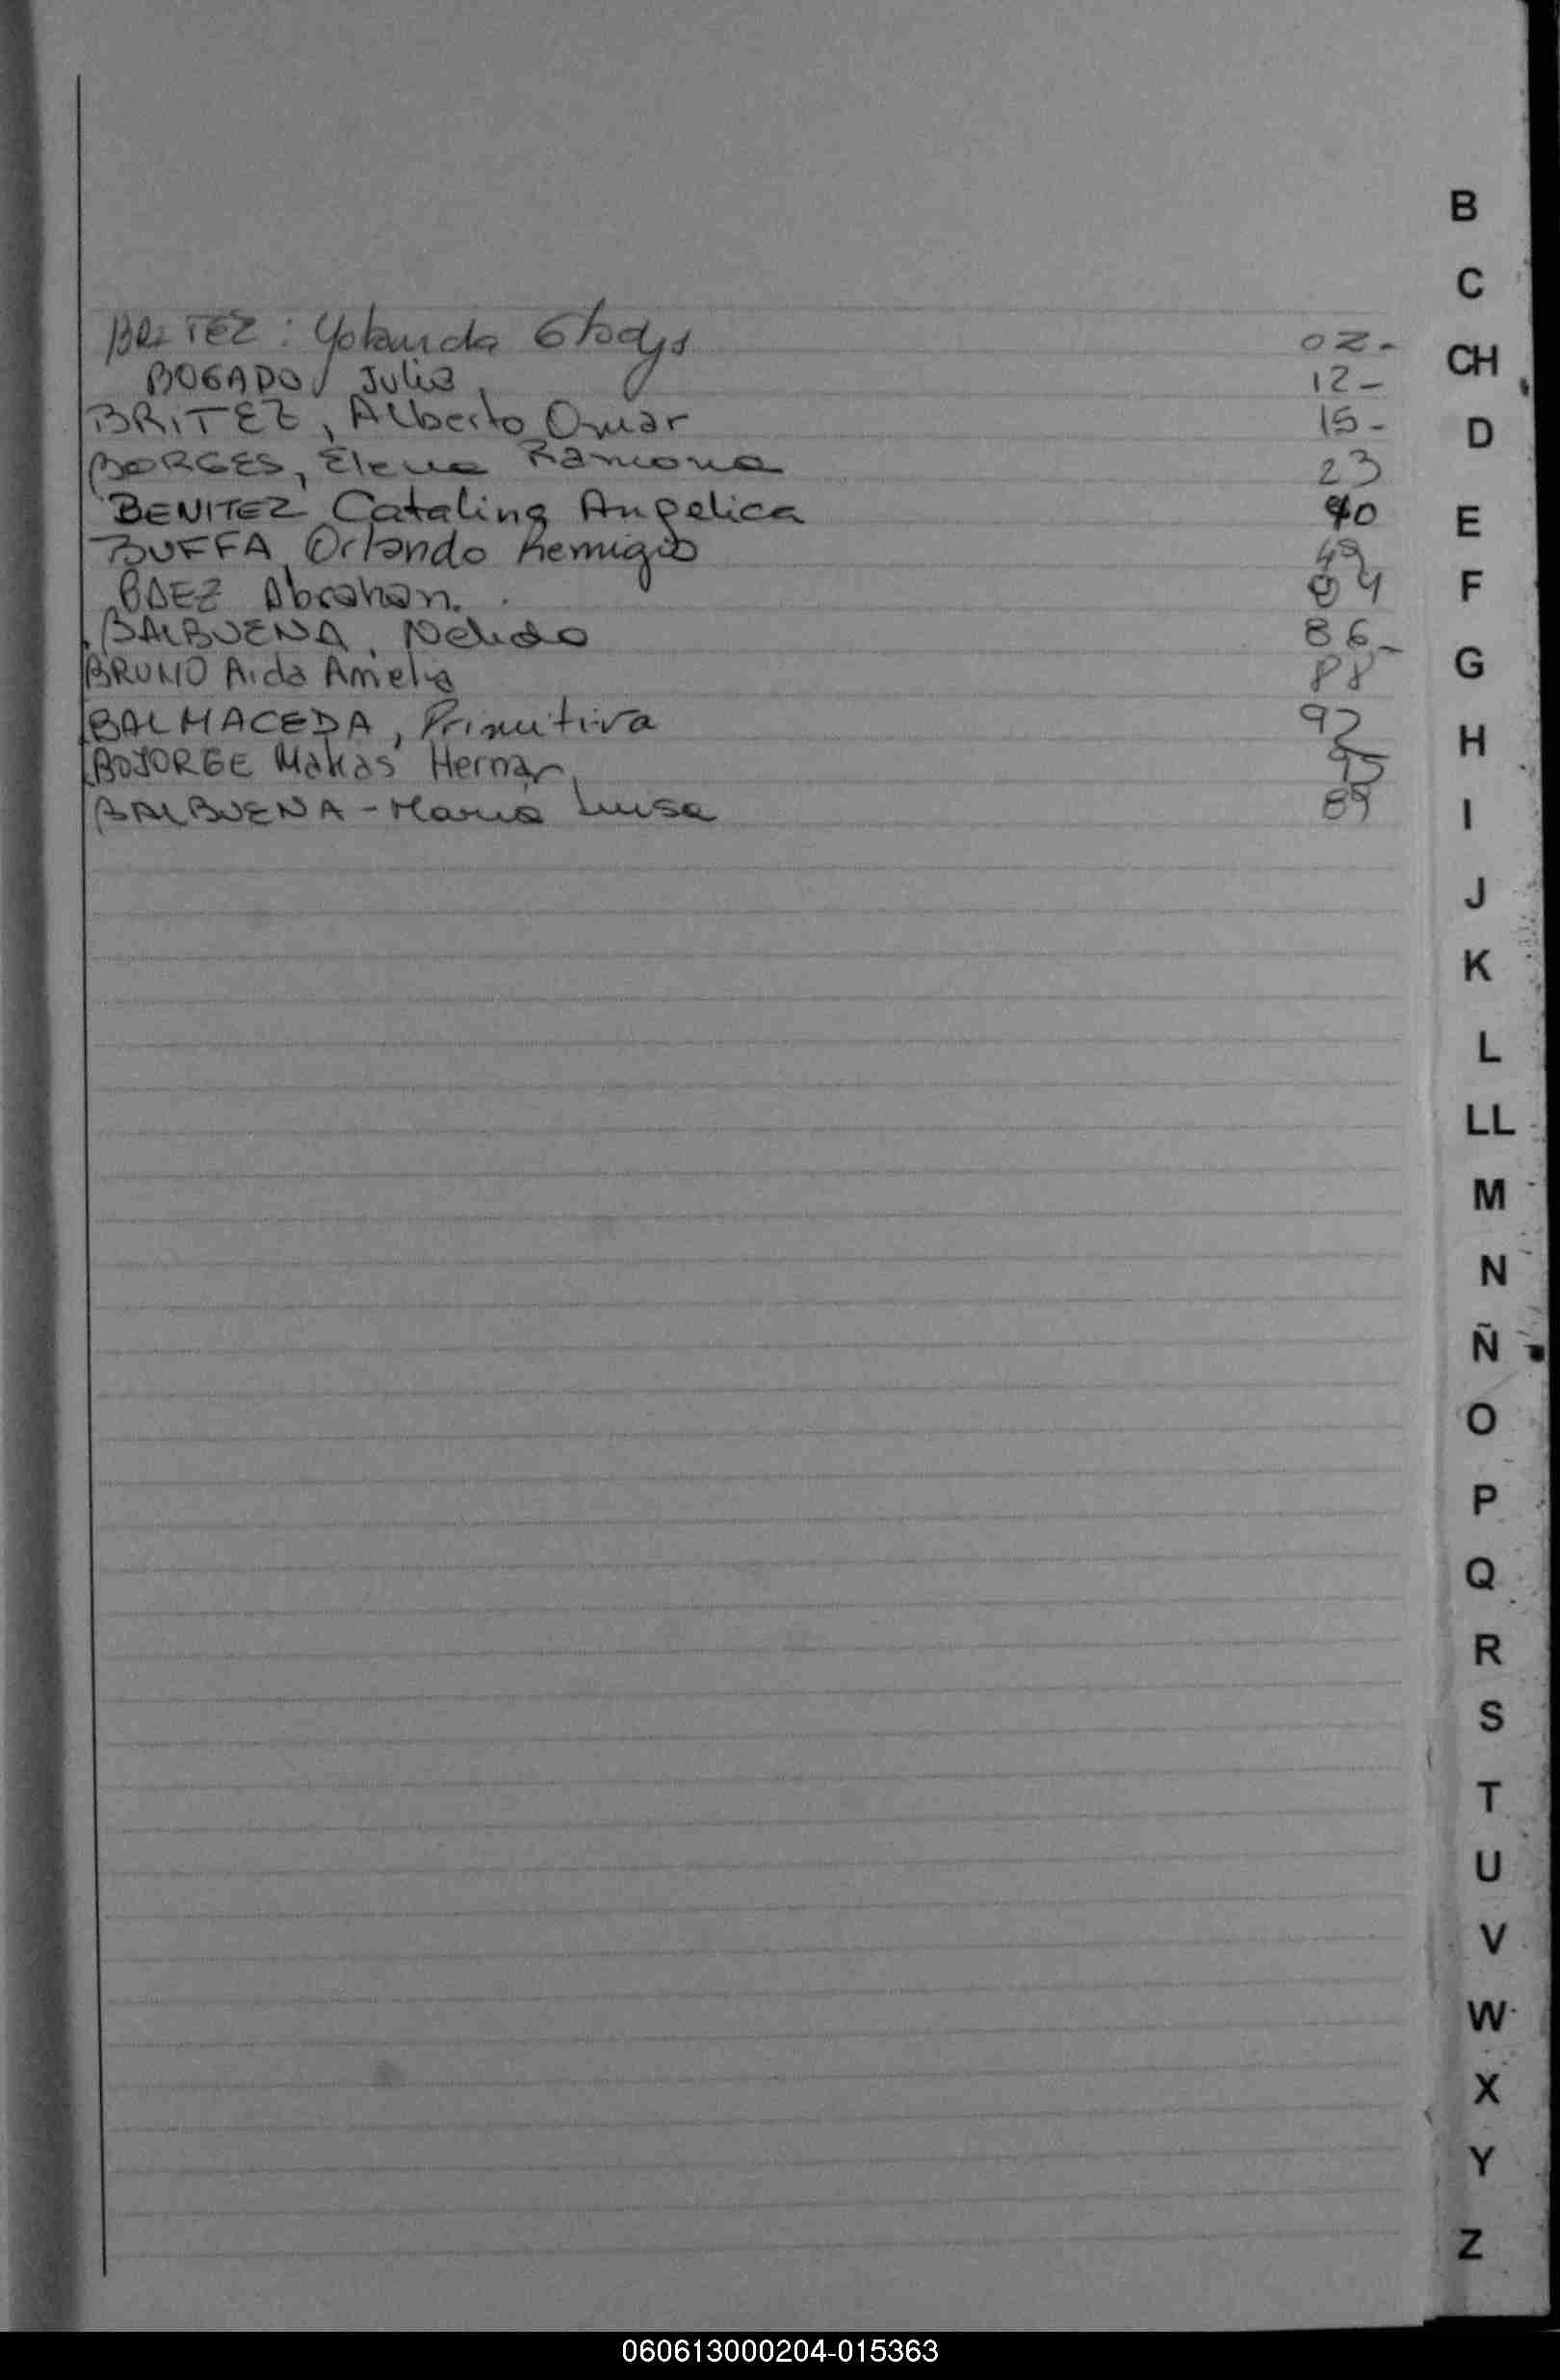 BRITEZ: Yolanda Gladys 02-
BOGADO, Julia 12-
BRITEZ, Alberto Omar 15-
BORGES, Elena Ramona 23
BENITEZ Catalina Angelica 40
BUFFA, Orlando Remigio 49
BAEZ Abrahan. 04
BALBUENA, Nelida 86-
BRUNO Aida Amelia 88
BALMACEDA, Primitiva 92
BOJORGE Matias Hernan 95
BALBUENA - Maria Luisa 89
B
C
CH
D
E
F
G
H
I
J
K
L
LL
M
N
Ñ
O
P
Q
R
S
T
U
V
W
X
Y
Z
060613000204-015363